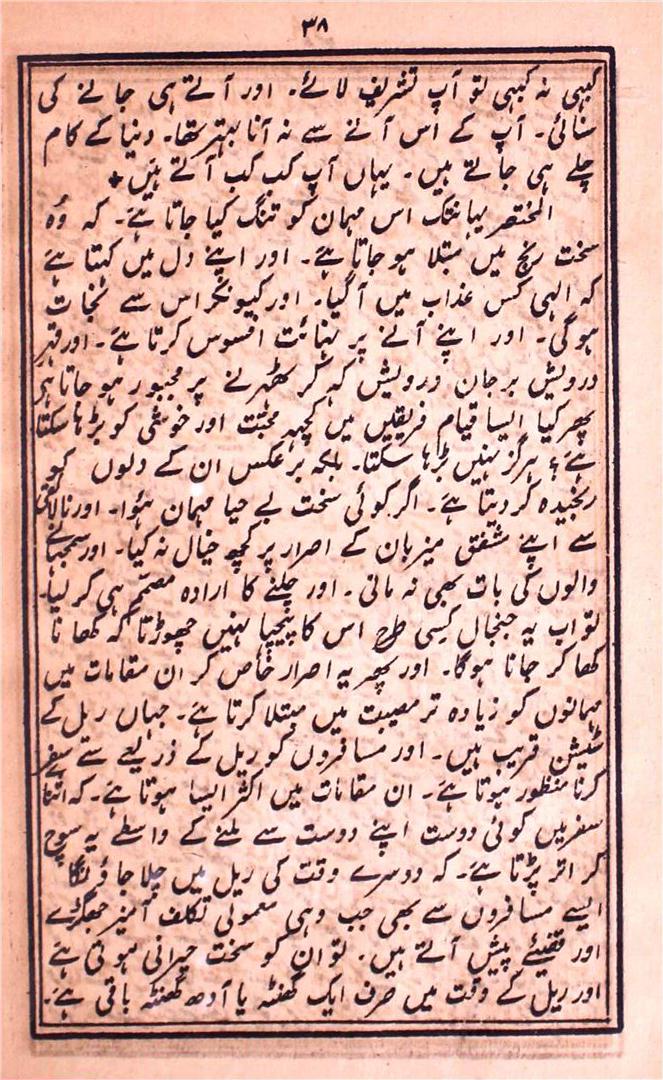 ۳۸
کبہی نہ کبہی تو آپ تشریف لائے۔ اور آتے ہی جانے کی
سنائی۔ آپ کے اس آنے سے نہ آنا بہتر تھا۔ دنیا کے کام
چلے ہی جاتے ہیں۔ یہاں آپ کب کب آتے ہیں٭
المختصر یہانتک اس مہمان کو تنگ کیا جاتا ہے۔ کہ وُہ
سخت رنج میں مبتلا ہو جاتا ہے۔ اور اپنے دل میں کہتا ہے
کہ الہی کس عذاب میں آگیا۔ اور کیونکر اس سے نجات
ہوگی۔ اور اپنے آنے پر نہائت افسوس کرتا ہے۔ اور قہر
درویش بر جان درویش کہہ کر ٹھہرنے پر مجبور ہو جاتا ہے
پھر کیا ایسا قیام فریقین میں کچہہ محبّت اور خوشی کو بڑہا سکتا
ہے؟ ہرگز نہیں بڑہا سکتا۔ بلکہ برعکس ان کے دلوں کو
رنجیدہ کر دیتا ہے۔ اگر کوئی سخت بے حیا مہمان ہئوا۔ اور نالائقی
سے اپنے مشفق میزبان کے اصرار پر کچھ خیال نہ کیا۔ اور سمجہانے
والوں کی بات بھی نہ مانی۔ اور چلنے کا ارادہ مصمّم ہی کر لیا۔
تو اب یہ جنجال کسِی طرح اس کا پیچہا نہیں چھوڑتا کہ کھانا
کھا کر جانا ہوگا۔ اور پھر یہ اصرار خاص کر ان مقامات میں
مہمانوں کو زیادہ تر مصیبت میں مبتلا کرتا ہے۔ جہاں ریل کے
سٹیشن قریب ہیں۔ اور مسافروں کو ریل کے ذریعے سے سفر
کرنا منظور ہوتا ہے۔ ان مقامات میں اکثر ایسا ہوتا ہے۔ کہ اثنا
سفر میں کوئی دوست اپنے دوست سے ملنے کے واسطے یہ سوچ
کر اتر پڑتا ہے۔ کہ دوسرے وقت کی ریل میں چلا جاؤنگا
ایسے مسافروں سے بھی جب وہی معمولی تکلف آمیز جھگڑے
اور قضیئے پیش آتے ہیں۔ تو ان کو سخت حیرانی ہوتی ہے
اور ریل کے وقت میں صرف ایک گھنٹہ یا آدھ گھنٹہ باقی ہے۔